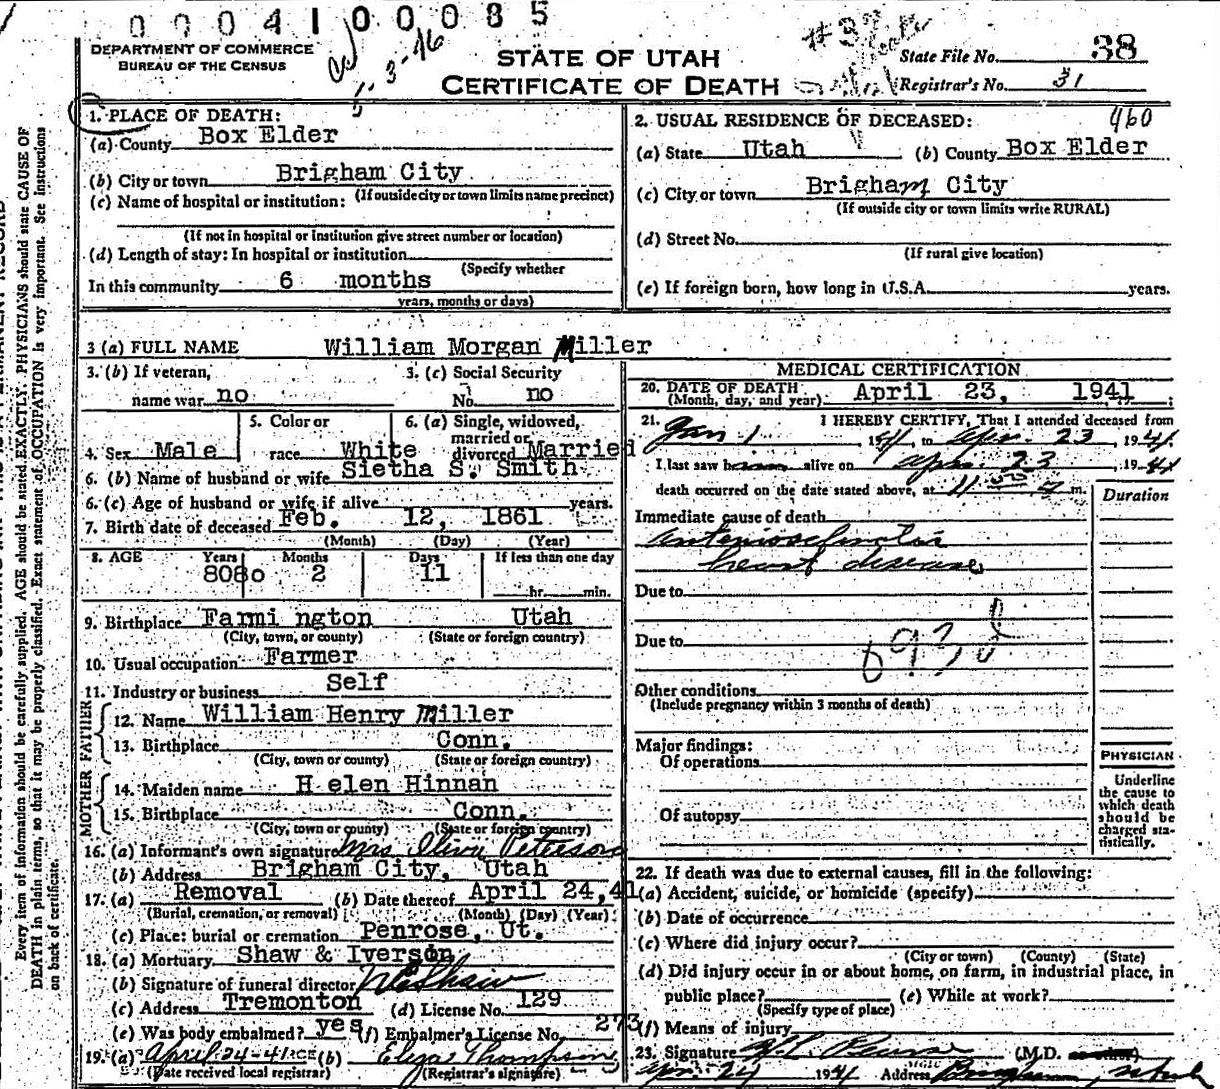 0 0 0 4 1 0 0 0 8 5
DEPARTMENT OF COMMERCE
BUREAU OF THE CENSUS
3-46
STATE OF UTAH
CERTIFICATE OF DEATH
State File No. 38
Registrar's No. 31
1. PLACE OF DEATH:
(a) County Box Elder
(b) City or town Brigham City
(If outside city or town limits name precinct)
(c) Name of hospital or institution:
(If not in hospital or institution give street number or location)
(d) Length of stay: In hospital or institution
(Specify whether
In this community 6 months
years, months or days)
2. USUAL RESIDENCE OF DECEASED: 460
(a) State Utah (b) County Box Elder
(c) City or town Brigham City
(If outside city or town limits write RURAL)
(d) Street No.
(If rural give location)
(e) If foreign born, how long in U.S.A. years.
3 (a) FULL NAME William Morgan Miller
3. (b) If veteran, 3. (c) Social Security
name war no No. no
4. Sex Male 5. Color or race White 6. (a) Single, widowed, married or divorced Married
6. (b) Name of husband or wife Sietha S. Smith
6. (c) Age of husband or wife if alive years.
7. Birth date of deceased Feb. 12, 1861
(Month) (Day) (Year)
8. AGE Years Months Days If less than one day
8080 2 11 hr. min.
9. Birthplace Farmi ngton Utah
(City, town, or county) (State or foreign country)
10. Usual occupation Farmer
11. Industry or business Self
FATHER
12. Name William Henry Miller
13. Birthplace Conn.
(City, town or county) (State or foreign country)
MOTHER
14. Maiden name H elen Hinnan
15. Birthplace Conn.
(City, town or county) (State or foreign country)
16. (a) Informant's own signature Mrs Peterson
(b) Address Brigham City, Utah
17. (a) Removal (b) Date thereof April 24, 41
(Burial, cremation, or removal) (Month) (Day) (Year)
(c) Place: burial or cremation Penrose, Ut.
18. (a) Mortuary Shaw & Iverson
(b) Signature of funeral director Shaw
(c) Address Tremonton (d) License No. 129
(e) Was body embalmed? yes (f) Embalmer's License No. 273
19. (a) April-24-41 (b) Eliza Thompson
(Date received local registrar) (Registrar's signature)
MEDICAL CERTIFICATION
20. DATE OF DEATH April 23, 1941
(Month, day, and year)
21. I HEREBY CERTIFY, That I attended deceased from
Jan 1 1941, to Apr. 23, 1941.
I last saw him alive on Apr. 23, 1941
death occurred on the date stated above, at 11 m.
Duration
Immediate cause of death
heart disease
Due to
Due to
Other conditions
(Include pregnancy within 3 months of death)
Major findings:
Of operations
Of autopsy
PHYSICIAN
Underline
the cause to
which death
should be
charged sta-
tistically.
22. If death was due to external causes, fill in the following:
(a) Accident, suicide, or homicide (specify)
(b) Date of occurrence
(c) Where did injury occur?
(City or town) (County) (State)
(d) Did injury occur in or about home, on farm, in industrial place, in
public place? (e) While at work?
(Specify type of place)
(f) Means of injury
23. Signature (M.D.
Apr. 24 1941 Address Brigham, Utah
Every item of information should be carefully supplied. AGE should be stated EXACTLY. PHYSICIANS should state CAUSE OF
DEATH in plain terms, so that it may be properly classified. Exact statement of OCCUPATION is very important. See instructions
on back of certificate.